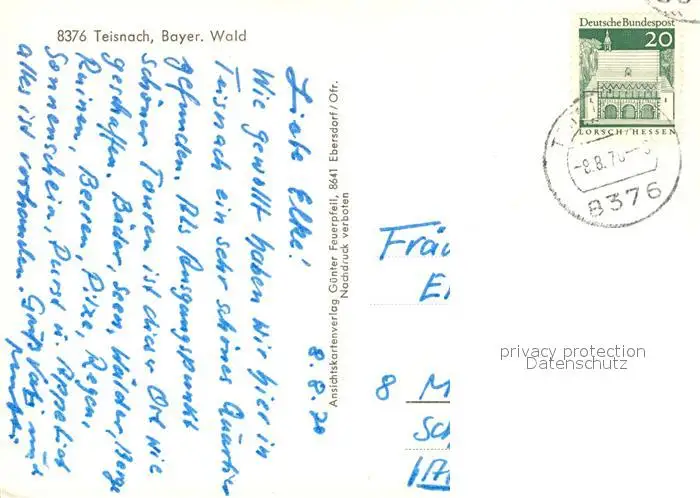 8376 Teisnach, Bayer. Wald
Liebe Elke!
8.8.70
Wie gewollt haben wir hier in
Teisnach ein sehr schönes Quartier
gefunden. Als Ausgangspunkt
schöner Touren ist dieser Ort wie
geschaffen. Bäder, Seen, Wälder, Berge
Ruinen, Beeren, Pilze, Regen,
Sonnenschein, Durst u. Appetit
alles ist vorhanden. Gruß
Ansichtskartenverlag Günter Feuerpfeil, 8641 Ebersdorf/Ofr.
Nachdruck verboten
Deutsche Bundespost
20
LORSCH/HESSEN
-8.8.70-
8376
Fräu
El
8 M
Sch
privacy protection
Datenschutz